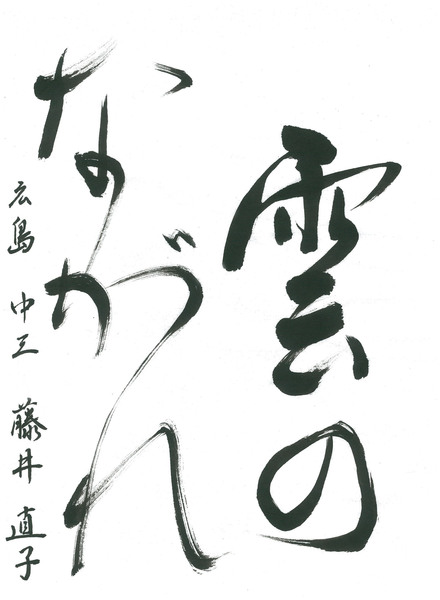 雲の
ながれ
広島 中三 藤井直子